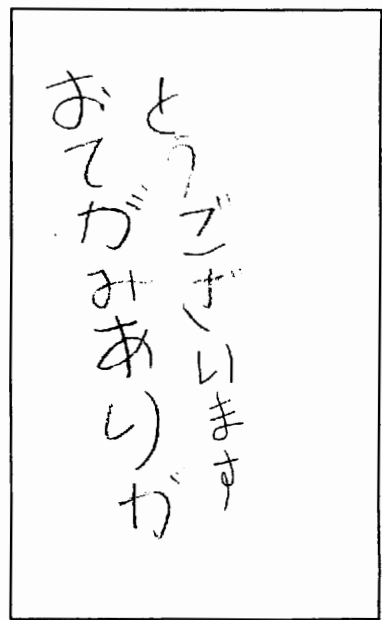 おてがみありが
とうございます